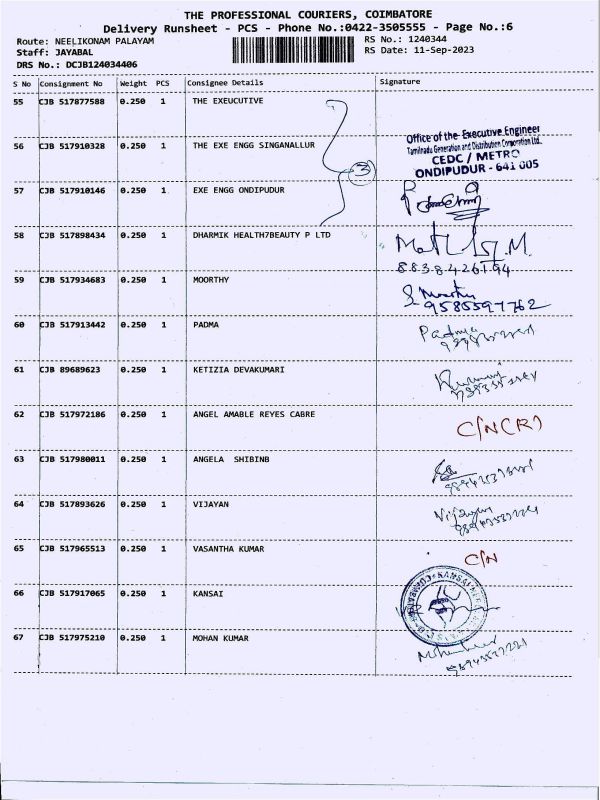 THE PROFESSIONAL COURIERS, COIMBATORE
Delivery Runsheet - PCS - Phone No.:0422-3505555 - Page No.:6
Route: NEELIKONAM PALAYAM RS No.: 1240344
Staff: JAYABAL RS Date: 11-Sep-2023
DRS No.: DCJB124034406
S No Consignment No Weight PCS Consignee Details Signature
55 CJB 517877588 0.250 1 THE EXEUCUTIVE
56 CJB 517910328 0.250 1 THE EXE ENGG SINGANALLUR
Office of the Executive Engineer
Tamilnadu Generation and Distribution Corporation Ltd.,
CEDC / METRO
ONDIPUDUR - 641 005
3
57 CJB 517910146 0.250 1 EXE ENGG ONDIPUDUR
58 CJB 517898434 0.250 1 DHARMIK HEALTH7BEAUTY P LTD
8838426194
59 CJB 517934683 0.250 1 MOORTHY
S Moorthy
9585597762
60 CJB 517913442 0.250 1 PADMA Padma
61 CJB 89689623 0.250 1 KETIZIA DEVAKUMARI
62 CJB 517972186 0.250 1 ANGEL AMABLE REYES CABRE C/N(R)
63 CJB 517980011 0.250 1 ANGELA SHIBINB
64 CJB 517893626 0.250 1 VIJAYAN Vijayan
65 CJB 517965513 0.250 1 VASANTHA KUMAR C/N
66 CJB 517917065 0.250 1 KANSAI
KANSAI
67 CJB 517975210 0.250 1 MOHAN KUMAR